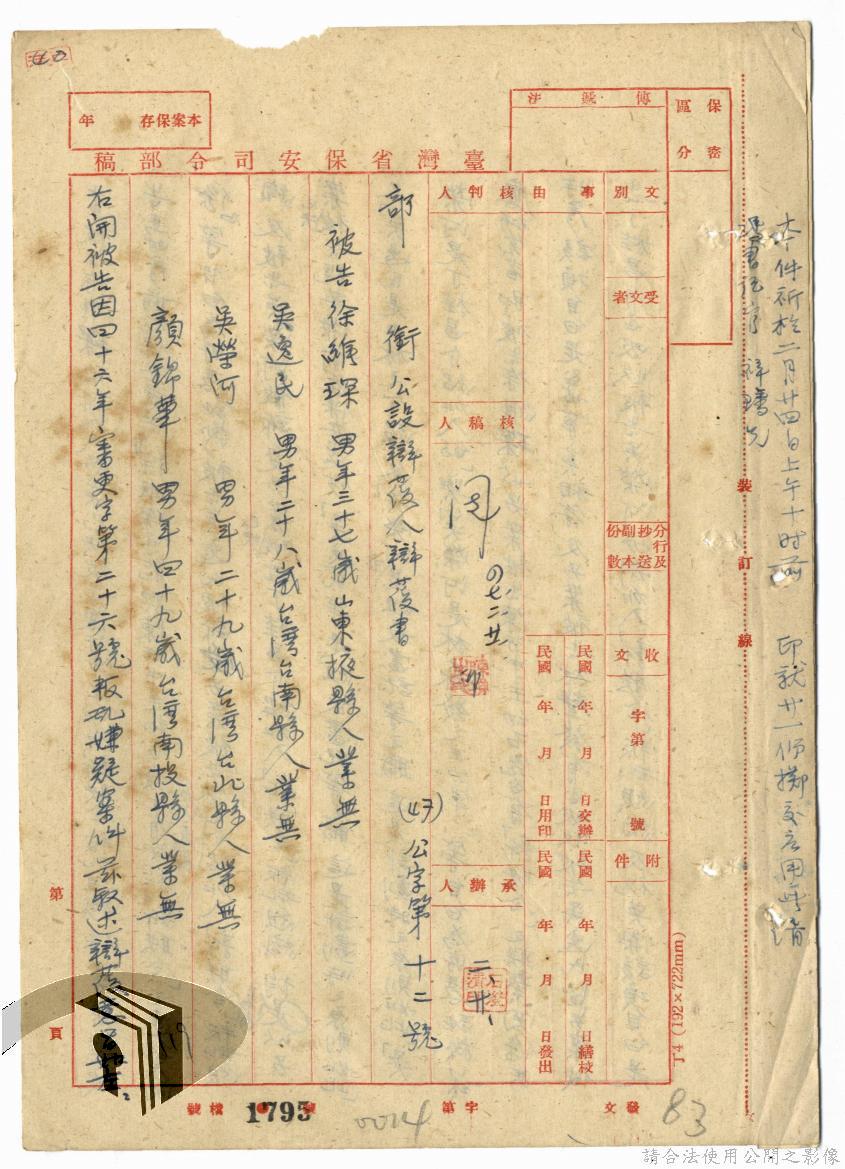 本件祈於二月廿四日上午十時前 印就廿一份擲交應用無誤
裝訂線
保密區分
傳遞方法
文別
受文者
分行及抄送副本份數
收文
字第 號
附件
事由
民國 年 月 日交辦
民國 年 月 日繕校
民國 年 月 日用印
民國 年 月 日發出
核判人
核稿人
承辦人
四七、二、廿
二、廿、
臺灣省保安司令部稿
本案保存 年
部 銜 公設辯護人辯護書 (47)公字第十二號
被告徐維琛 男年三十七歲山東掖縣人業無
吳逸民 男年二十八歲台灣台南縣人業無
吳榮河 男年二十九歲台灣台北縣人業無
顏錦華 男年四十九歲台灣南投縣人業無
右開被告因四十六年審更字第二十六號叛亂嫌疑案件茲敘述辯護意旨如左
第 頁
發文 字第 號 檔號
1795
0024
83
119
J4 (192×722mm)
請合法使用公開之影像